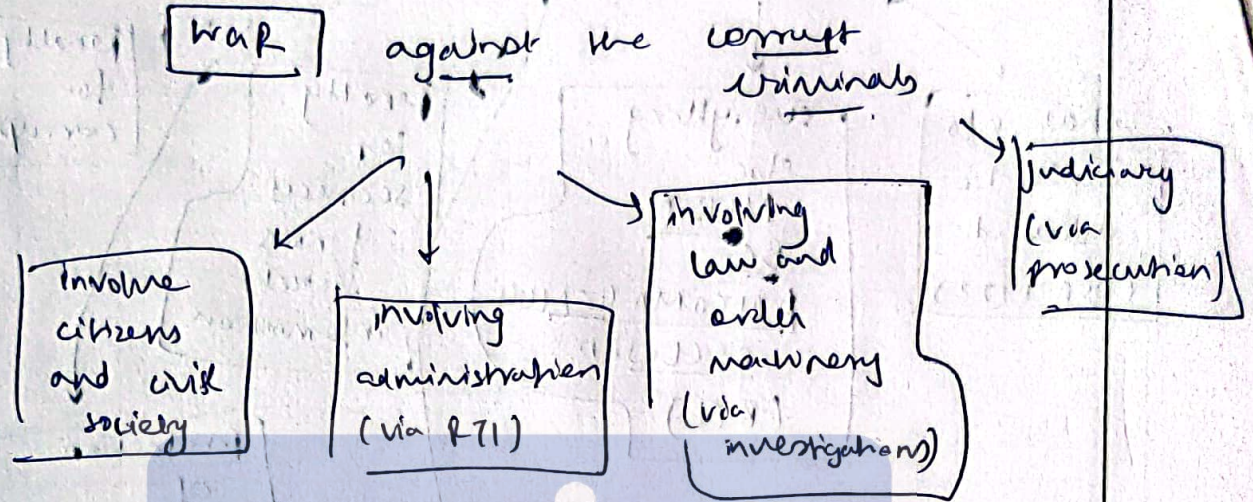 WaR against the corrupt
criminals
involve
citizens
and civil
society
involving
administration
(via RTI)
involving
law and
order
machinery
(via
investigations)
judiciary
(via
prosecution)